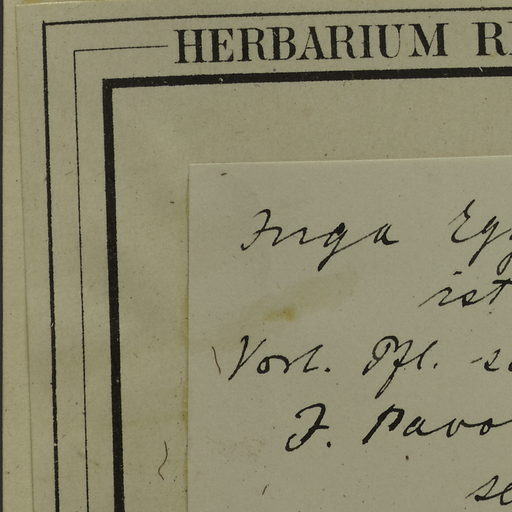 HERBARIUM R
Inga Egg
ist
Vorl. Pfl. s
J. Pavo
se